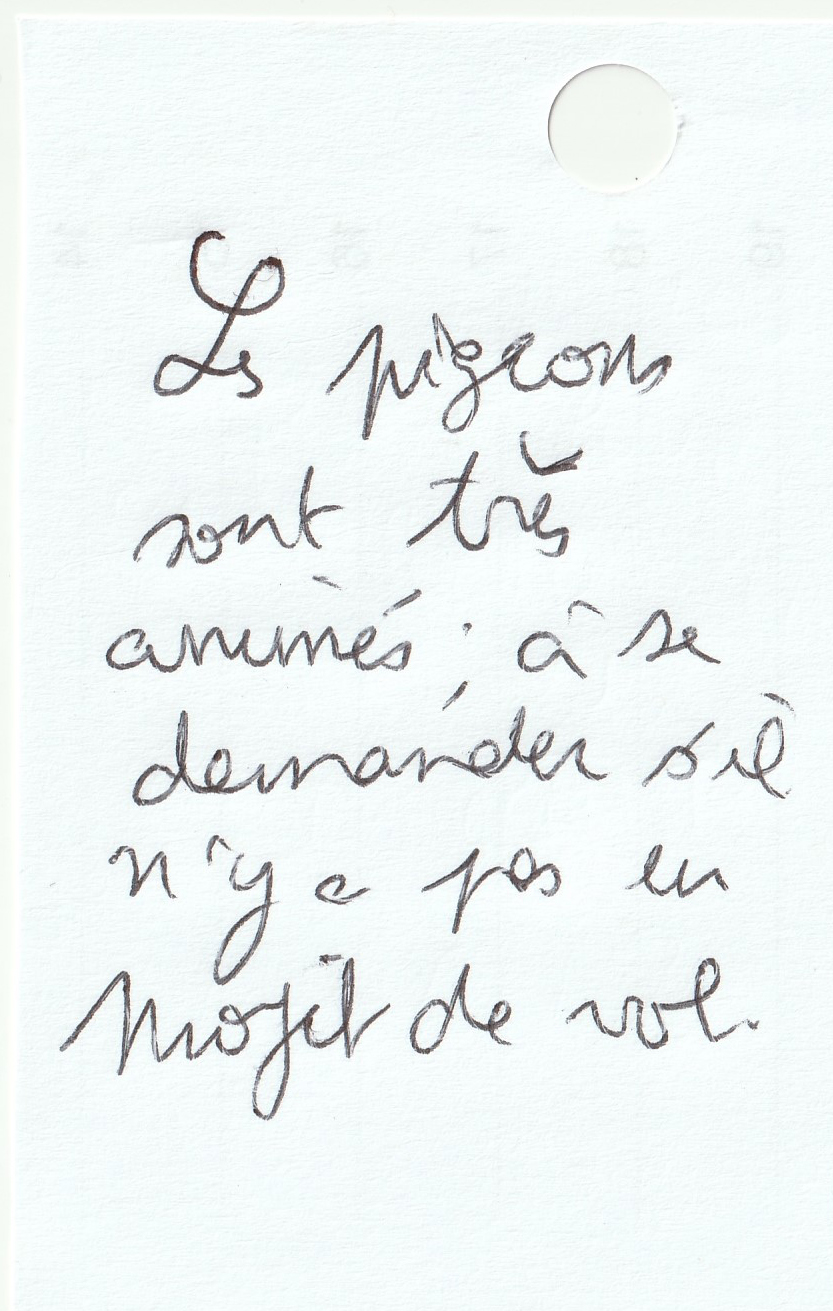 Les pigeons
sont très
animés ; à se
demander s'il
n'y a pas un
projet de vol.